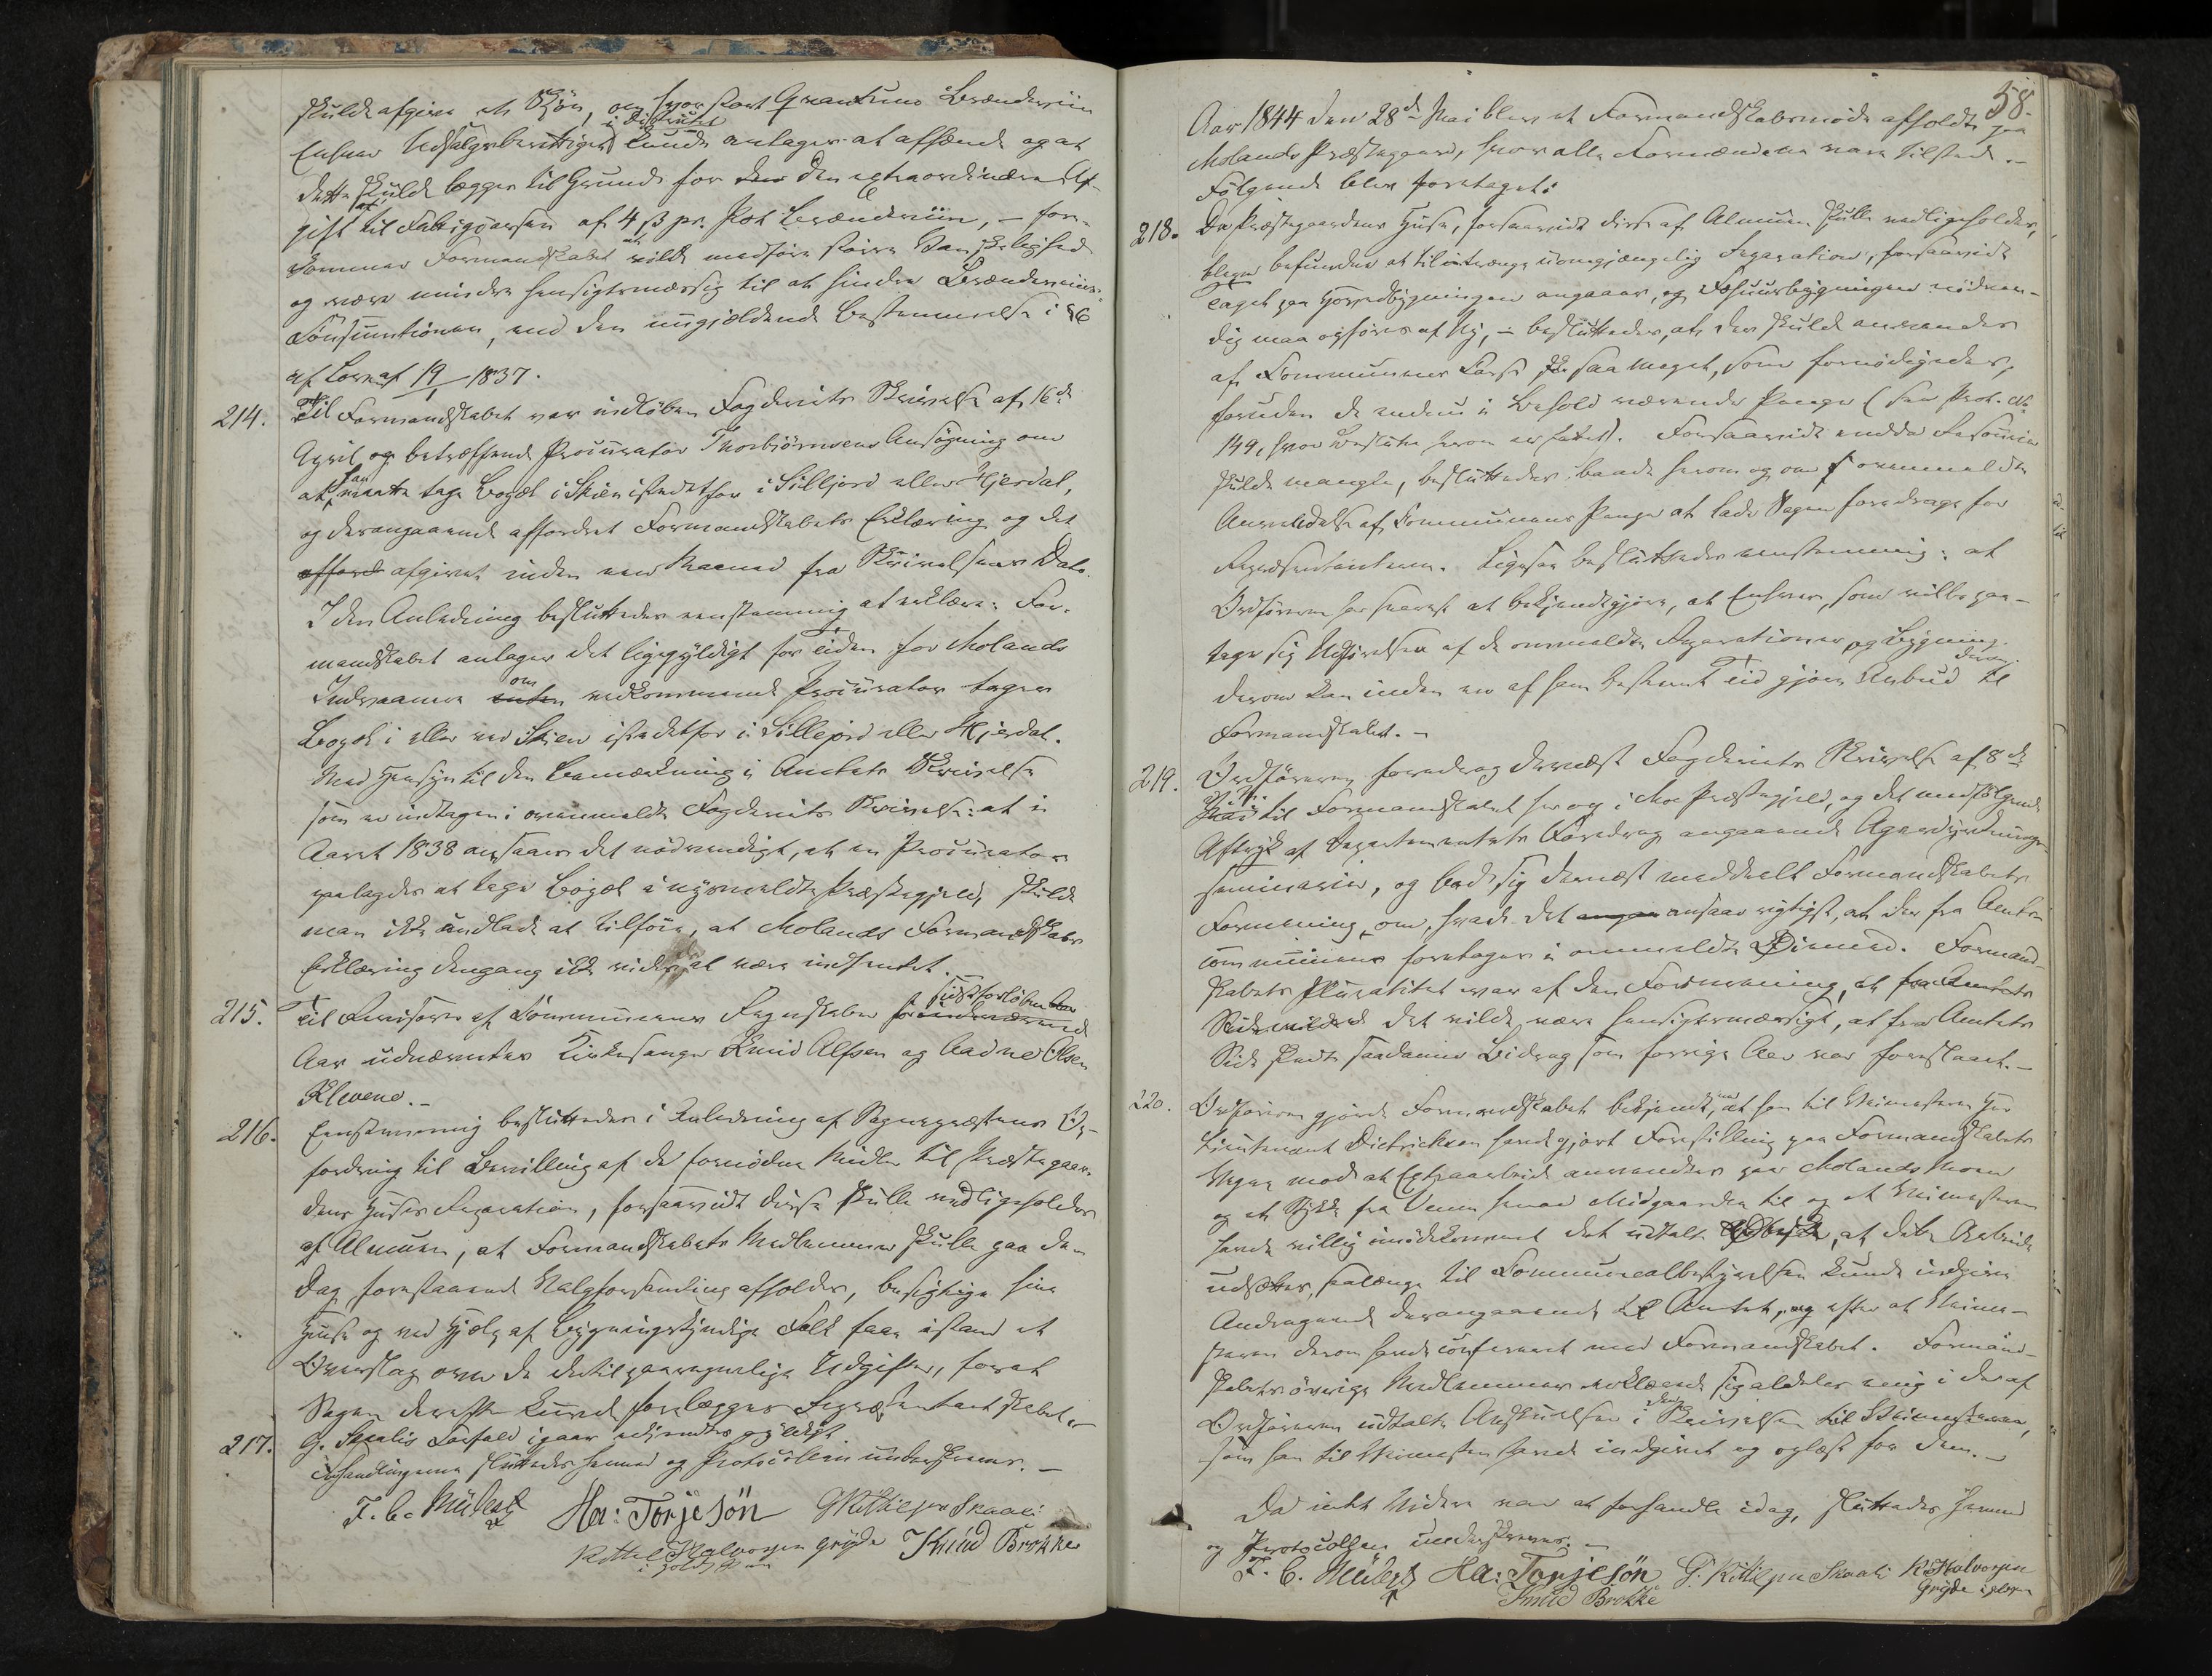 skulde afgive et Skjön, om hvor stort Quantum Brændeviin
Enhver Udsalgsberettiget i Distriktet kunde antages at afhænde og at
dette skulde lægges til Grund for den extraordinære Af-
gift til Fattigcassen af 4 ß pr. Pot Brændeviin, – for-
mener Formandskabet at vilde medføre større Vanskelighed
og være mindre hensigtsmæssig til at hindre Brændeviins-
Consumtionen, end den nugjældende Bestemmelse i § 6
af Lov af 19/1 1837.
214. Til Formandskabet var indløben Fogderiets Skrivelse af 16de
April og betræffende Procurator Thorbjörnsens Ansøgning om
at maatte tage Bopæl i Skien istedetfor i Silljord eller Hjerdal,
og derangaaende affordret Formandskabets Erklæring og det
afgivet inden een Maaned fra Skrivelsens Dato.
I den Anledning besluttedes eenstemmig at erklære: For-
mandskabet antager det ligegyldigt for Tiden for Molands
Indvaanere om vedkommende Procurator tager
Bopæl i eller ved Skien istedetfor i Sillejord eller Hjerdal.
Med Hensyn til den Bemærkning i Amtets Skrivelse
som er indtagen i ovenmeldte Fogderiets Skrivelse: at i
Aaret 1838 ansaaes det nødvendigt, at en Procurator
paalagdes at tage Bopæl i nysmeldte Præstegjeld, skulde
man ikke undlade at tilføie, at Molands Formandskabs
Erklæring dengang ikke vides at være indhentet.
215. Til Revisorer af Communens Regnskaber for sidstforløbne
Aar udnævntes Kirkesanger Knud Alfsen og Aadne Olsen
Klevene. –
216. Eenstemmig besluttedes i Anledning af Sognepræstens Op-
fordring til Bevilling af de fornødne Midler til Præstegaar-
dens Huses Reparation, forsaavidt disse skulle vedligeholdes
af Almuen, at Formandskabets Medlemmer skulle paa den
Dag forestaaende Valgforsamling afholdes, besigtige hine
Huse og ved Hjelp af bygningskyndige Folk faae istand et
Overslag over de dertil paaregnelige Udgifter, forat
Sagen derefter kunde forelægges Repræsentantskabet. –
217. G. Skalis Forfald igaar gyldigt.
Forhandlingerne sluttedes hermed og Protocollen underskreves. –
F. C. Müller Ha: Torjesön G Kittilsen Skaali
Kittel Halvorsen Gryde Knud Brokke
58.
Aar 1844 den 28de Mai blev et Formandskabsmøde afholdt paa
Molands Præstegaard, hvor alle Formændene vare tilstede. –
Følgende blev foretaget:
218. Da Præstegaardens Huse, forsaavidt disse af Almuen skulle vedligeholdes,
bleve befundne at tiltrænge uomgjængelig Reparation, forsaavidt
Taget paa Hovedbygningen angaaer, og Fæhuusbygningen nødven-
dig maa opføres af Ny, – besluttedes, at der skulde anvendes
af Communens Casse saa meget, som fornødiges,
foruden de endnu i Behold værende Penge (see Prot. No
149, hvor Beslutn herom er fattet). Forsaavidt endda Ressourcer
skulde mangle, besluttedes baade herom og om ovenmeldte
Anvendelse af Communens Penge at lade Sagen foredrage for
Repræsentanterne. Ligesaa besluttedes eenstemmig: at
Ordføreren har snarest at bekjendtgjøre, at Enhver, som vilde paa-
tage sig Udførelsen af de ommeldte Reparationer og Bygning
derom kan inden en af ham bestemt Tid gjøre Anbud derom til
Formandskabet. –
219. Ordføreren foredrog dernæst Fogderiets Skrivelse af 8de
Mai til Formandskabet her og i Moe Præstegjeld, og det medfølgende
Aftryk af Departementets Foredrag angaaende Agerdyrknings-
seminarier, og bad sig dernæst meddeelt Formandskabets
Formening om, hvad det ansaae rigtigst, at der fra Amts-
communens foretages i ommeldte Øiemed. Formand-
skabets Pluralitet var af den Formening, at
det vilde være hensigtsmæssigt, at fra Amtets
Side skeede saadanne Bidrag som forrige Aar var foreslaaet. –
220. Ordføreren gjorde Formandskabet bekjendt med, at han til Veimesteren Hr
Lieutenant Dietrichson havde gjort Forestilling paa Formandskabets
Vegne mod at Extraarbeide anvendtes paa Molands Moen
og et Stykke fra Veum henad Midgaarden til og at Veimesteren
havde villig imødekommet det udtalte, at dette Arbeide
udsættes, saalænge til Communalbestyrelsen kunde indgive
Andragende derangaaende til Amtet, og efter at Veime-
steren derom havde confereret med Formandskabet. Formand-
skabets øvrige Medlemmer erklærede sig aldeles enig i den af
Ordføreren udtalte Anskuelse i Skrivelsen til Veimesteren,
som han til Veimesteren havde indgivet og oplæst for dem. –
Da intet Videre var at forhandle idag, sluttedes hermed
og Protocollen underskreves. –
F. C. Müller Ha: Torjesön G. Kittilsen Skaali K Halvorsen
Knud Brokke Gryde